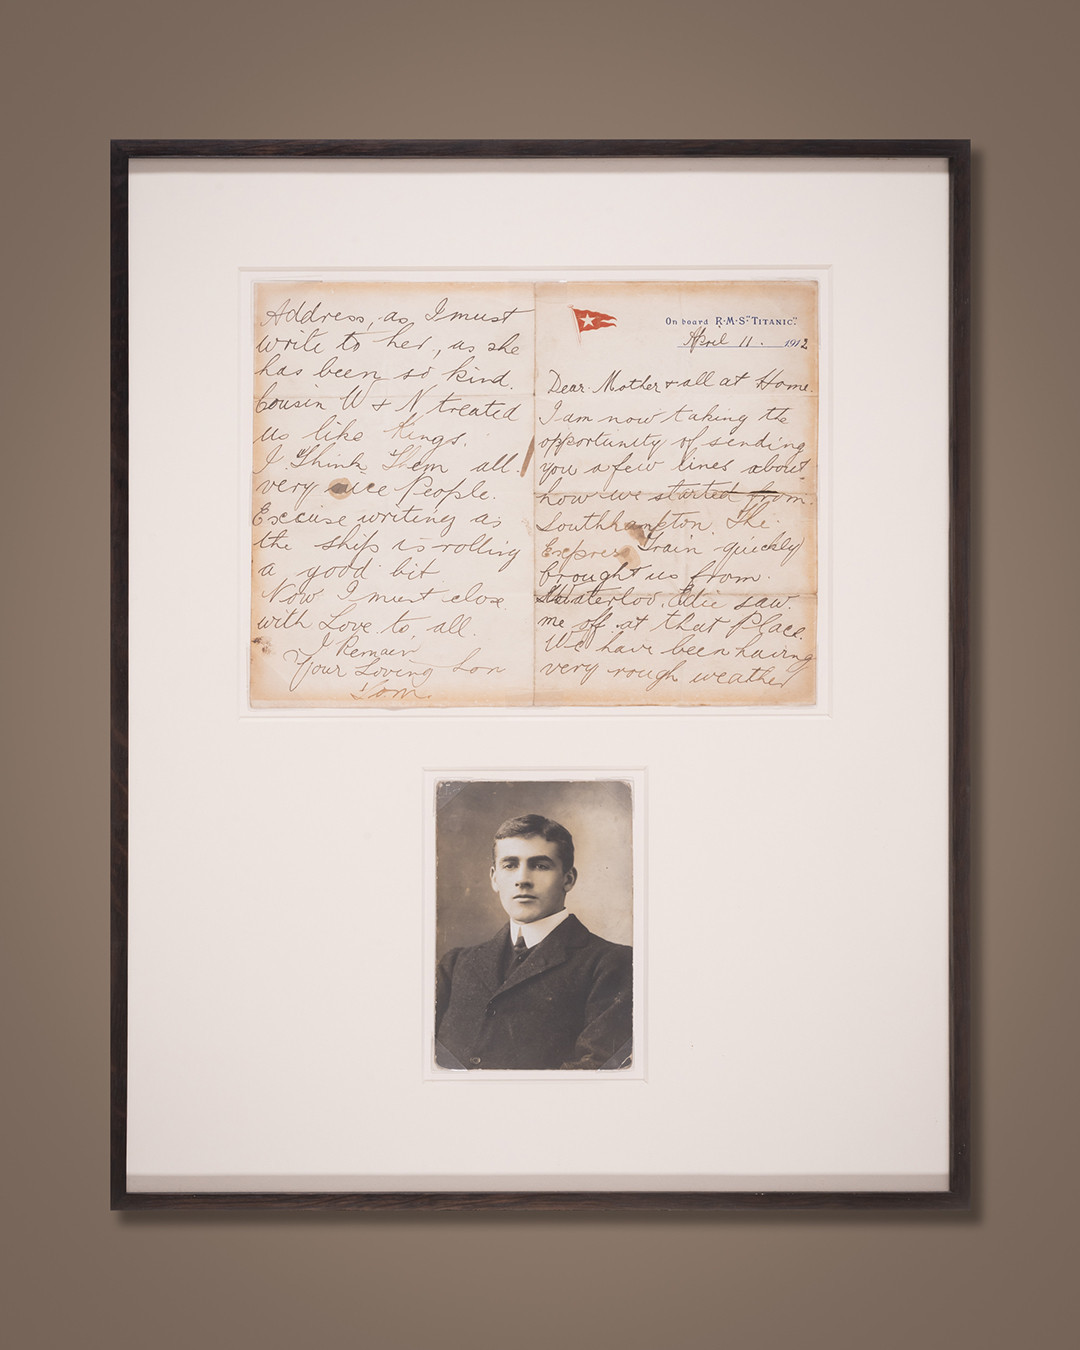 On board R·M·S· "TITANIC".
April 11. 1912
Dear Mother & all at Home.
I am now taking the
opportunity of sending
you a few lines about
how we started from.
Southhampton. The
Expres Train quickly
brought us from.
Waterloo. saw.
me off at that Place.
We have been having
very rough weather
Address, as I must
write to her, as she
has been so kind.
Cousin W & N, treated
us like Kings.
I Think Them all.
very nice People.
Excuse writing as
the ship is rolling
a good bit
Now I must close
with Love to all.
I Remain
Your Loving Son
Tom.